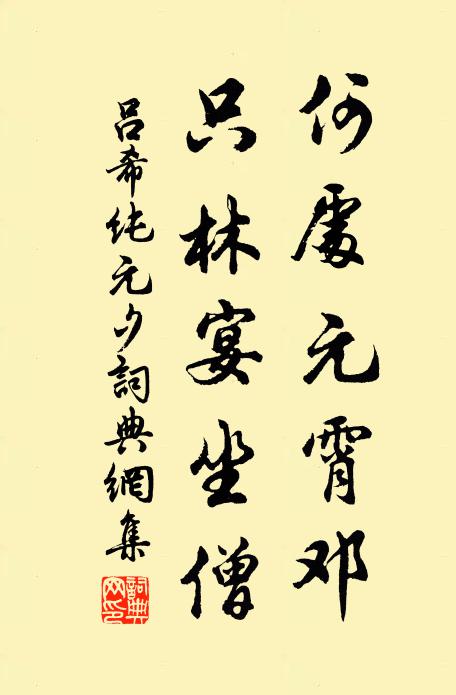 何處元霄邓
只林宴坐僧
吕希纯元夕詞典網集
詞典網印